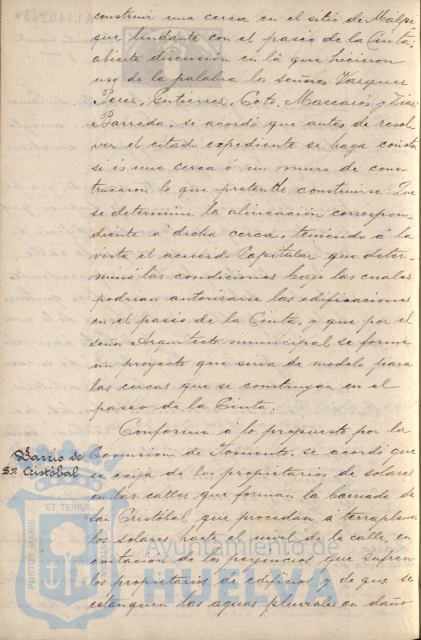 construir una cerca en el sitio de Malpi
que lindante con el paseo de la Cinta,
abierta discusion en la que hicieron
uso de la palabra los señores Vazquez
Perez, Gutierrez, Coto, Mascarós y Diaz
Barreda, se acordó que antes de resol-
ver el citado expediente se haga constar
si és una cerca ó un muro de cons-
truccion lo que pretende construirse: Que
se determine la alineación correspon-
diente á dicha cerca, teniendo á la
vista el acuerdo Capitular que deter-
minó las condiciones bajo las cuales
podrian autorizarse las edificaciones
en el paseo de la Cinta, y que por el
señor Arquitecto municipal se forme
un proyecto que sirva de modelo para
las cercas que se construyan en el
paseo de la Cinta.
Conforme á lo propuesto por la
Barrio de
Sn Cristóbal
Comision de Fomento, se acordó que
se exija de los propietarios de solares
en las calles que forman la barriada de
San Cristóbal que procedan á terraplenar
los solares hasta el nivel de la calle, en
evitacion de los perjuicios que sufren
los propietarios de edificios y de que se
estanquen las aguas pluviales en daño
Ayuntamiento de
HUELVA
PORTUS MARIS
ET TERRAE